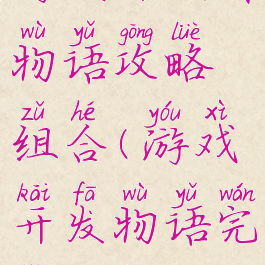 wù yǔ gōng lüè
物语攻略
zǔ hé yóu xì
组合(游戏
kāi fā wù yǔ wán
开发物语完